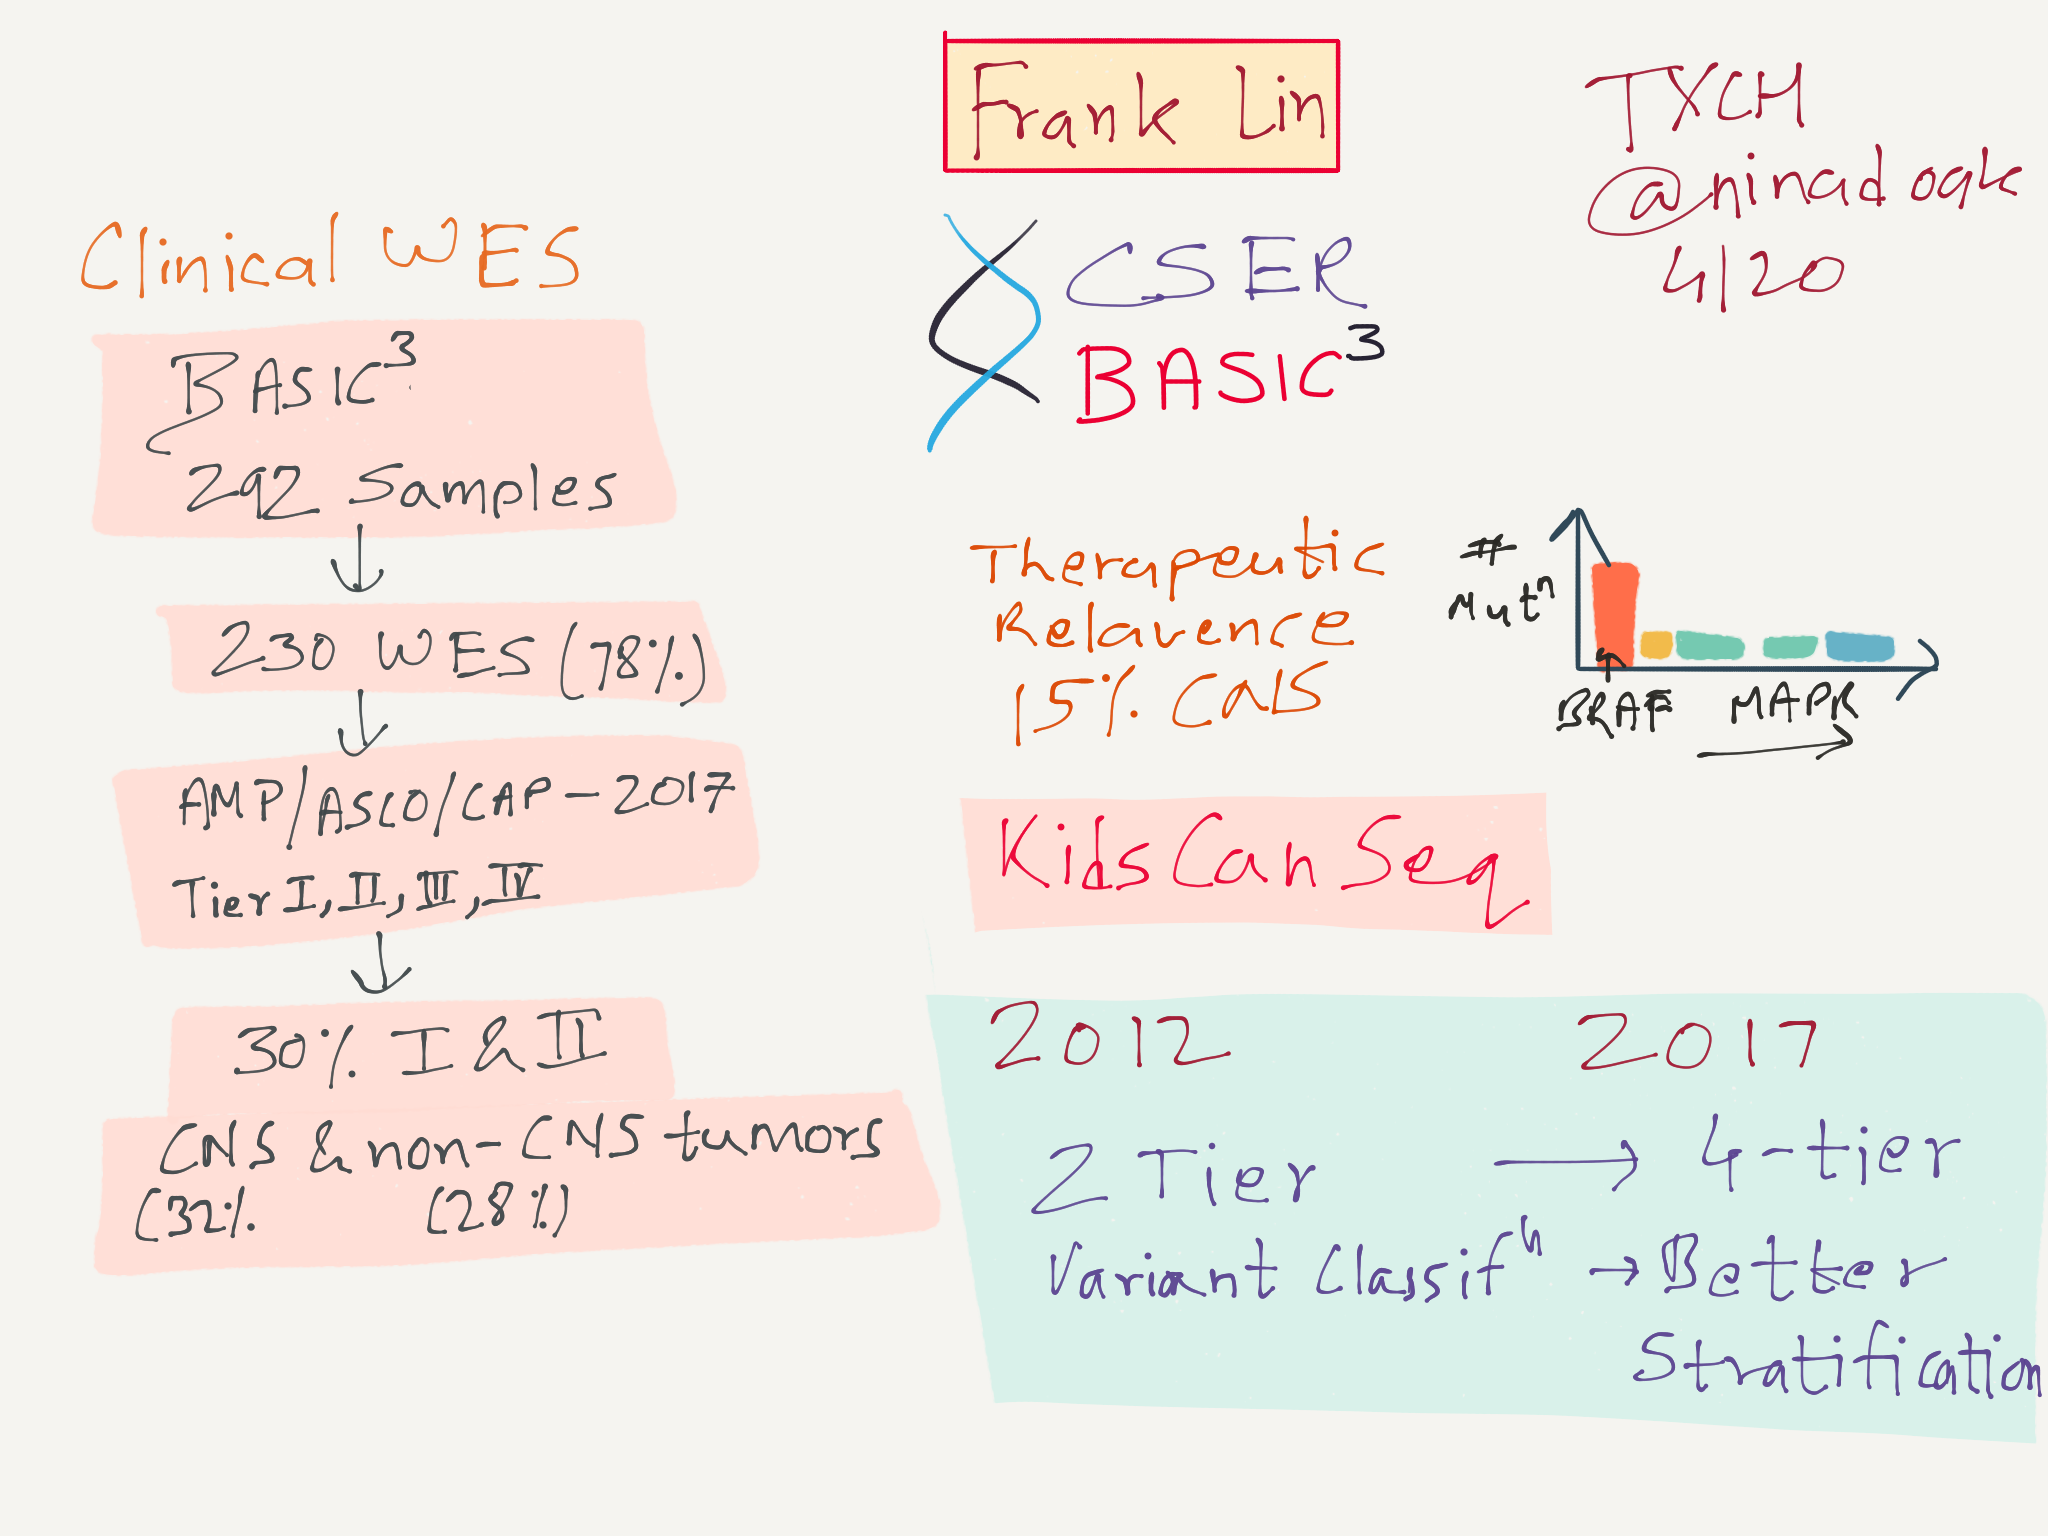 Frank Lin
TXCH
@ninadoak
4/20
Clinical WES
BASIC³
292 Samples
230 WES (78%)
AMP/ASCO/CAP - 2017
Tier I, II, III, IV
30% I & II
CNS & non-CNS tumors
(32% (28%)
CSER
BASIC³
Therapeutic
Relavence
15% CNS
#
Mutⁿ
BRAF MAPK
KidsCanSeq
2012 2017
2 Tier → 4-tier
Variant Classifⁿ → Better
Stratification